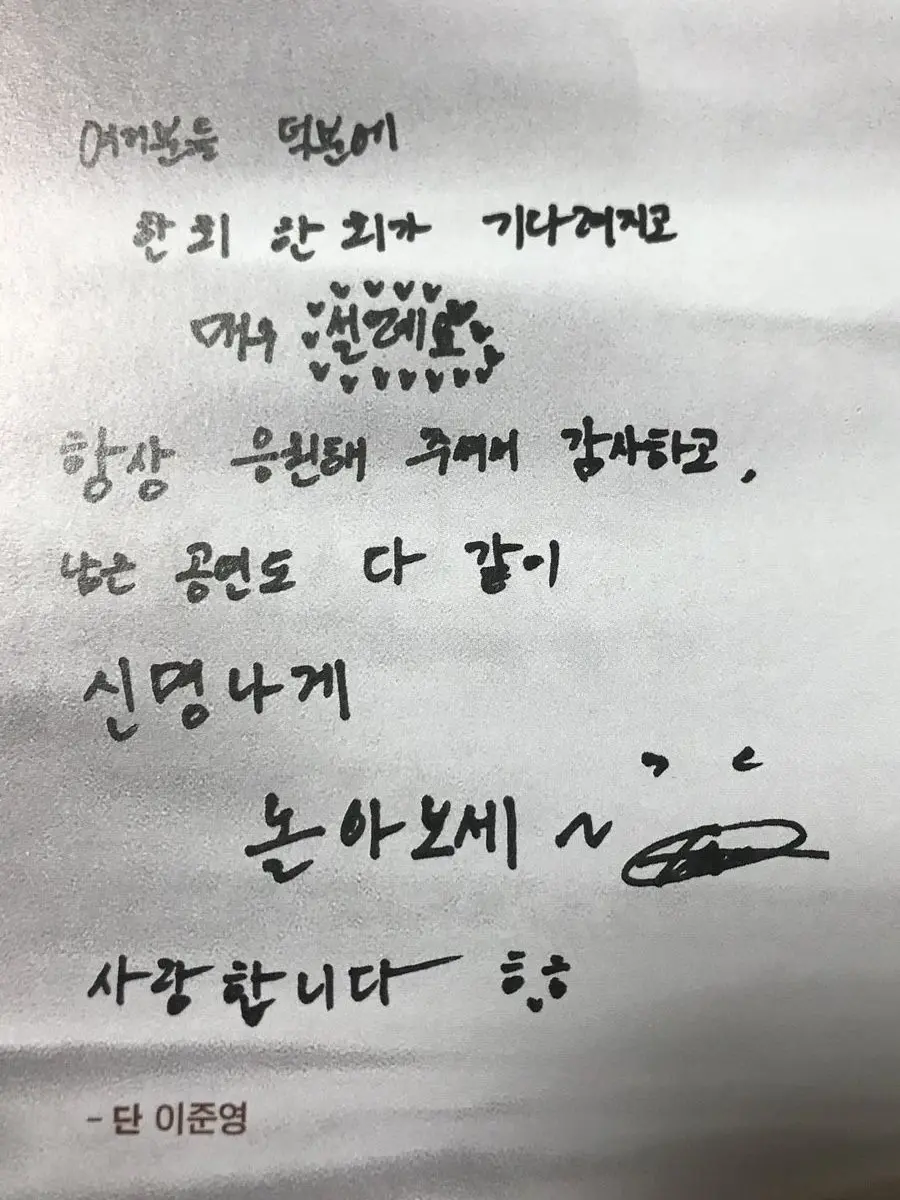 여러분들 덕분에
한 회 한 회가 기다려지고
매우 설레요
항상 응원해 주셔서 감사하고,
남은 공연도 다 같이
신명나게
놀아보세~
사랑합니다 ㅎㅎ
- 단 이준영